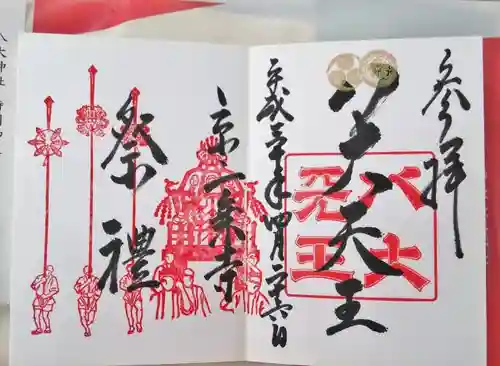 參拝
八大天王
八大天王
平成三十年四月二十六日
京一乗寺
祭禮
八大神社